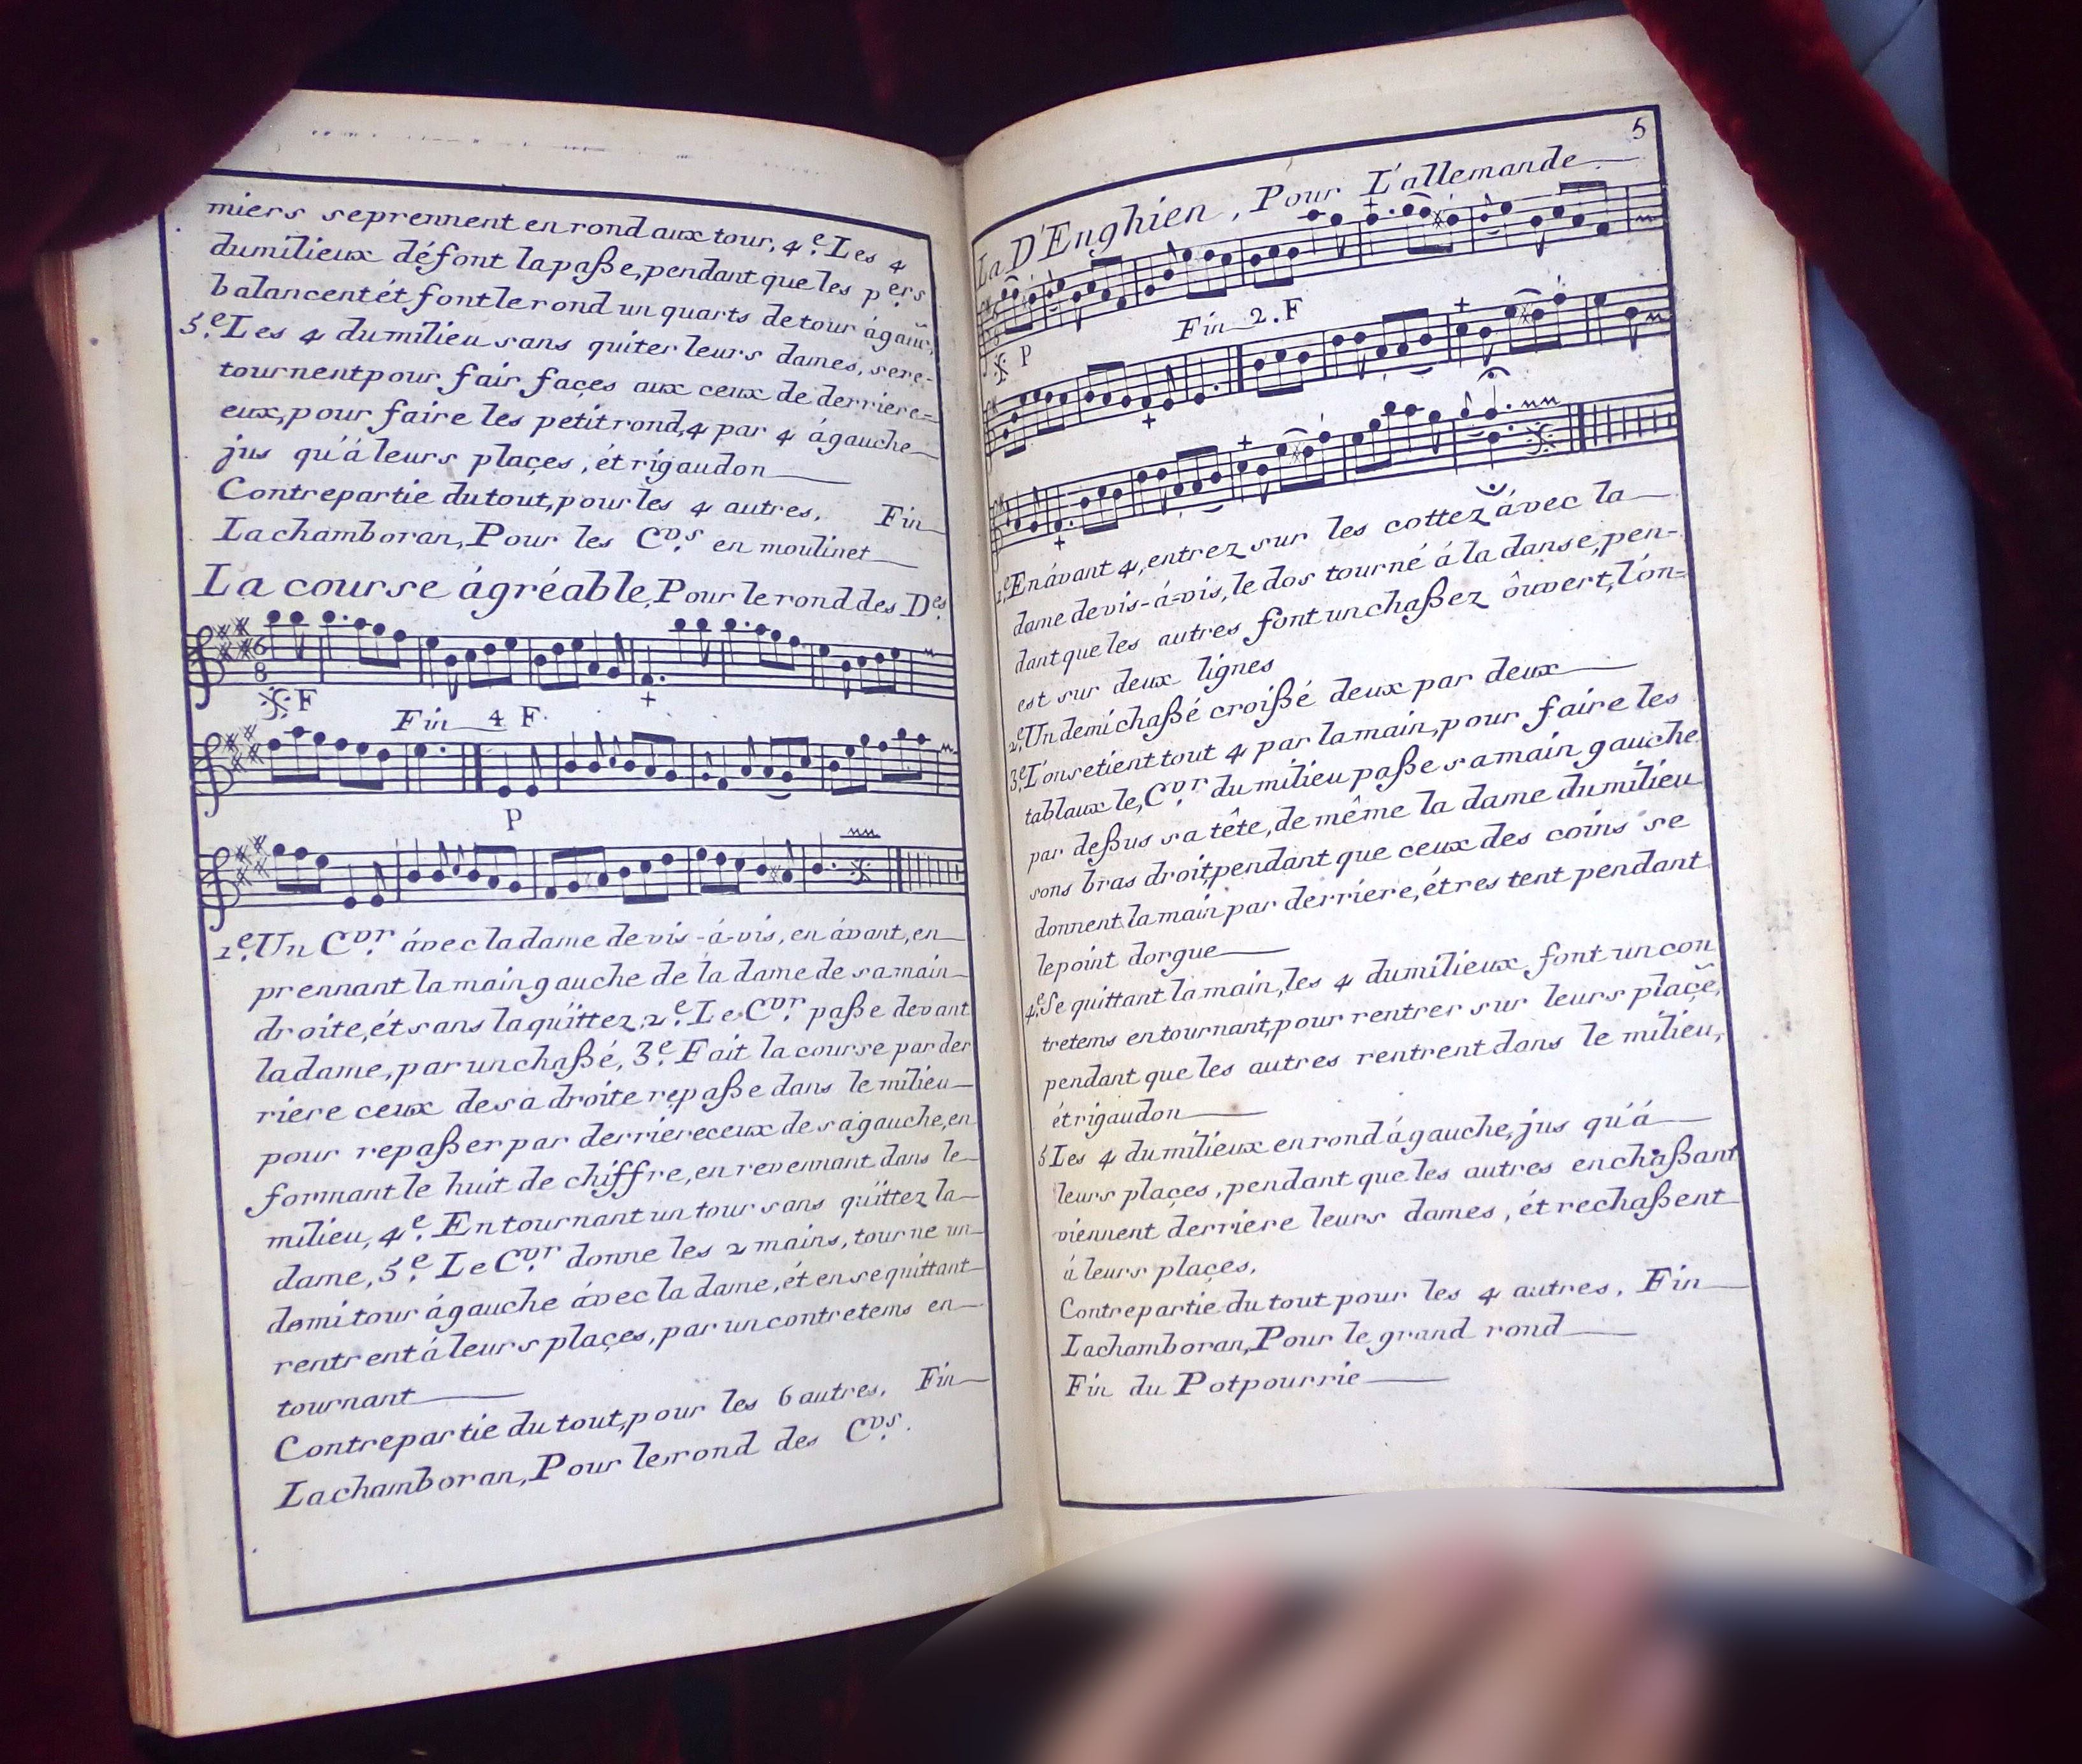 miers se prennent en rond aux tour, 4.e Les 4
du milieux défont la paße, pendant que les pers
balancent ét font le rond un quarts de tour á gauc.
5.e Les 4 du milieu sans quiter leurs dames, se re-
tournent pour fair façes aux ceux de derriere=
eux, pour faire les petit rond, 4 par 4 á gauche
jus qu'á leurs plaçes, ét rigaudon
Contrepartie du tout, pour les 4 autres, Fin
La chamboran, Pour les C.vrs en moulinet
La course ágréable, Pour le rond des D.es
6
8
F
Fin 4 F.
P
1.e Un C.vr ávec la dame de vis-á-vis, en ávant, en
prennant la main gauche de la dame de sa main
droite, ét sans la quïttez, 2.e Le C.vr paße devant
la dame, par un chaßé, 3.e Fait la course par der
riere ceux de sa droite repaße dans le milieu
pour repaßer par derriere ceux de sa gauche, en
formant le huit de chiffre, en revennant dans le
milieu, 4.e En tournant un tour sans quïttez la
dame, 5.e Le C.vr donne les 2 mains, tourne un
demi tour á gauche ávec la dame, ét en se quïttant
rentrent á leurs plaçes, par un contretems en
tournant
Contrepartie du tout, pour les 6 autres, Fin
La chamboran, Pour le rond des C.vrs.
5
La D'Enghien, Pour L'allemande
P
Fin 2. F
1.e En ávant 4, entrez sur les cottez ávec la
dame de vis-á-vis, le dos tourné á la danse, pen-
dant que les autres font un chaßez ôuvert, l'on=
est sur deux lignes
2.e Un demi chaßé croißé deux par deux
3.e L'on se tient tout 4 par la main, pour faire les
tablaux le, C.vr du milieu paße sa main gauche
par deßus sa tête, de même la dame du milieu
sons bras droit, pendant que ceux des coins se
donnent la main par derriere, ét res tent pendant
le point dorgue
4.e Se quittant la main, les 4 du milieux font un con
tretems en tournant, pour rentrer sur leurs plaçe,
pendant que les autres rentrent dans le milieu,
ét rigaudon
5 Les 4 du milieux en rond á gauche, jus qu'á
leurs plaçes, pendant que les autres en chaßant
viennent derriere leurs dames, ét rechaßent
á leurs plaçes,
Contrepartie du tout pour les 4 autres, Fin
La chamboran, Pour le grand rond
Fin du Potpourrie